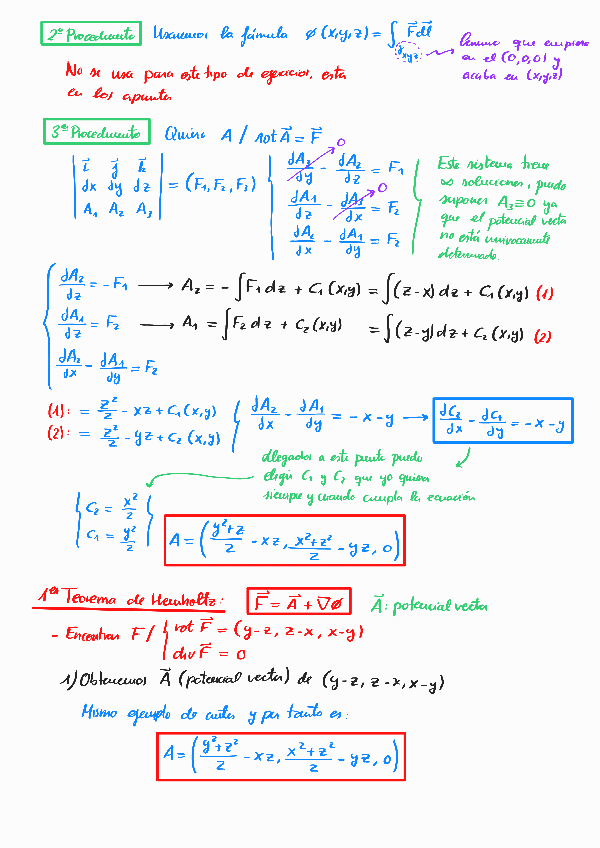 2º Procedimiento Usaremos la fórmula φ(x,y,z) = ∫γxyz F⃗ dl⃗
Camino que empieza
en el (0,0,0) y
acaba en (x,y,z)
No se usa para este tipo de ejercicios, esta
en los apuntes
3er Procedimiento Quiero A / rot A⃗ = F⃗
| i⃗ j⃗ k⃗ |
| dx dy dz | = (F₁, F₂, F₃)
| A₁ A₂ A₃ |
dA₃/dy → 0 - dA₂/dz = F₁
dA₁/dz - dA₃/dx → 0 = F₂
dA₂/dx - dA₁/dy = F₂
Este sistema tiene
∞ soluciones, puedo
suponer A₃ ≡ 0 ya
que el potencial vector
no está unívocamente
determinado.
dA₂/dz = - F₁ → A₂ = - ∫F₁ dz + C₁(x,y) = ∫(z-x) dz + C₁(x,y) (1)
dA₁/dz = F₂ → A₁ = ∫F₂ dz + C₂(x,y) = ∫(z-y) dz + C₂(x,y) (2)
dA₂/dx - dA₁/dy = F₂
(1): = z²/2 - xz + C₁(x,y)
(2): = z²/2 - yz + C₂(x,y)
dA₂/dx - dA₁/dy = -x-y → dC₂/dx - dC₁/dy = -x-y
llegados a este punto puedo
elegir C₁ y C₂ que yo quiera
siempre y cuando cumpla la ecuación
C₂ = x²/2
C₁ = y²/2
A = (y²+z/2 - xz, x²+z²/2 - yz, 0)
1er Teorema de Hemholtz: F⃗ = A⃗ + ∇⃗φ A⃗: potencial vector
- Encontrar F / rot F⃗ = (y-z, z-x, x-y)
div F⃗ = 0
1) Obtenemos A⃗ (potencial vector) de (y-z, z-x, x-y)
Mismo ejemplo de antes y por tanto es:
A = (y²+z²/2 - xz, x²+z²/2 - yz, 0)